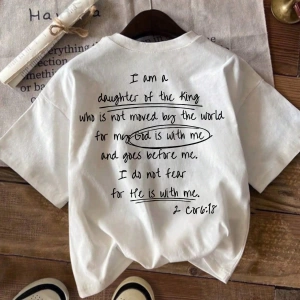 I am a
daughter of the King
who is not moved by the world
for my God is with me
and goes before me.
I do not fear
for He is with me.
2 Cor 6:18